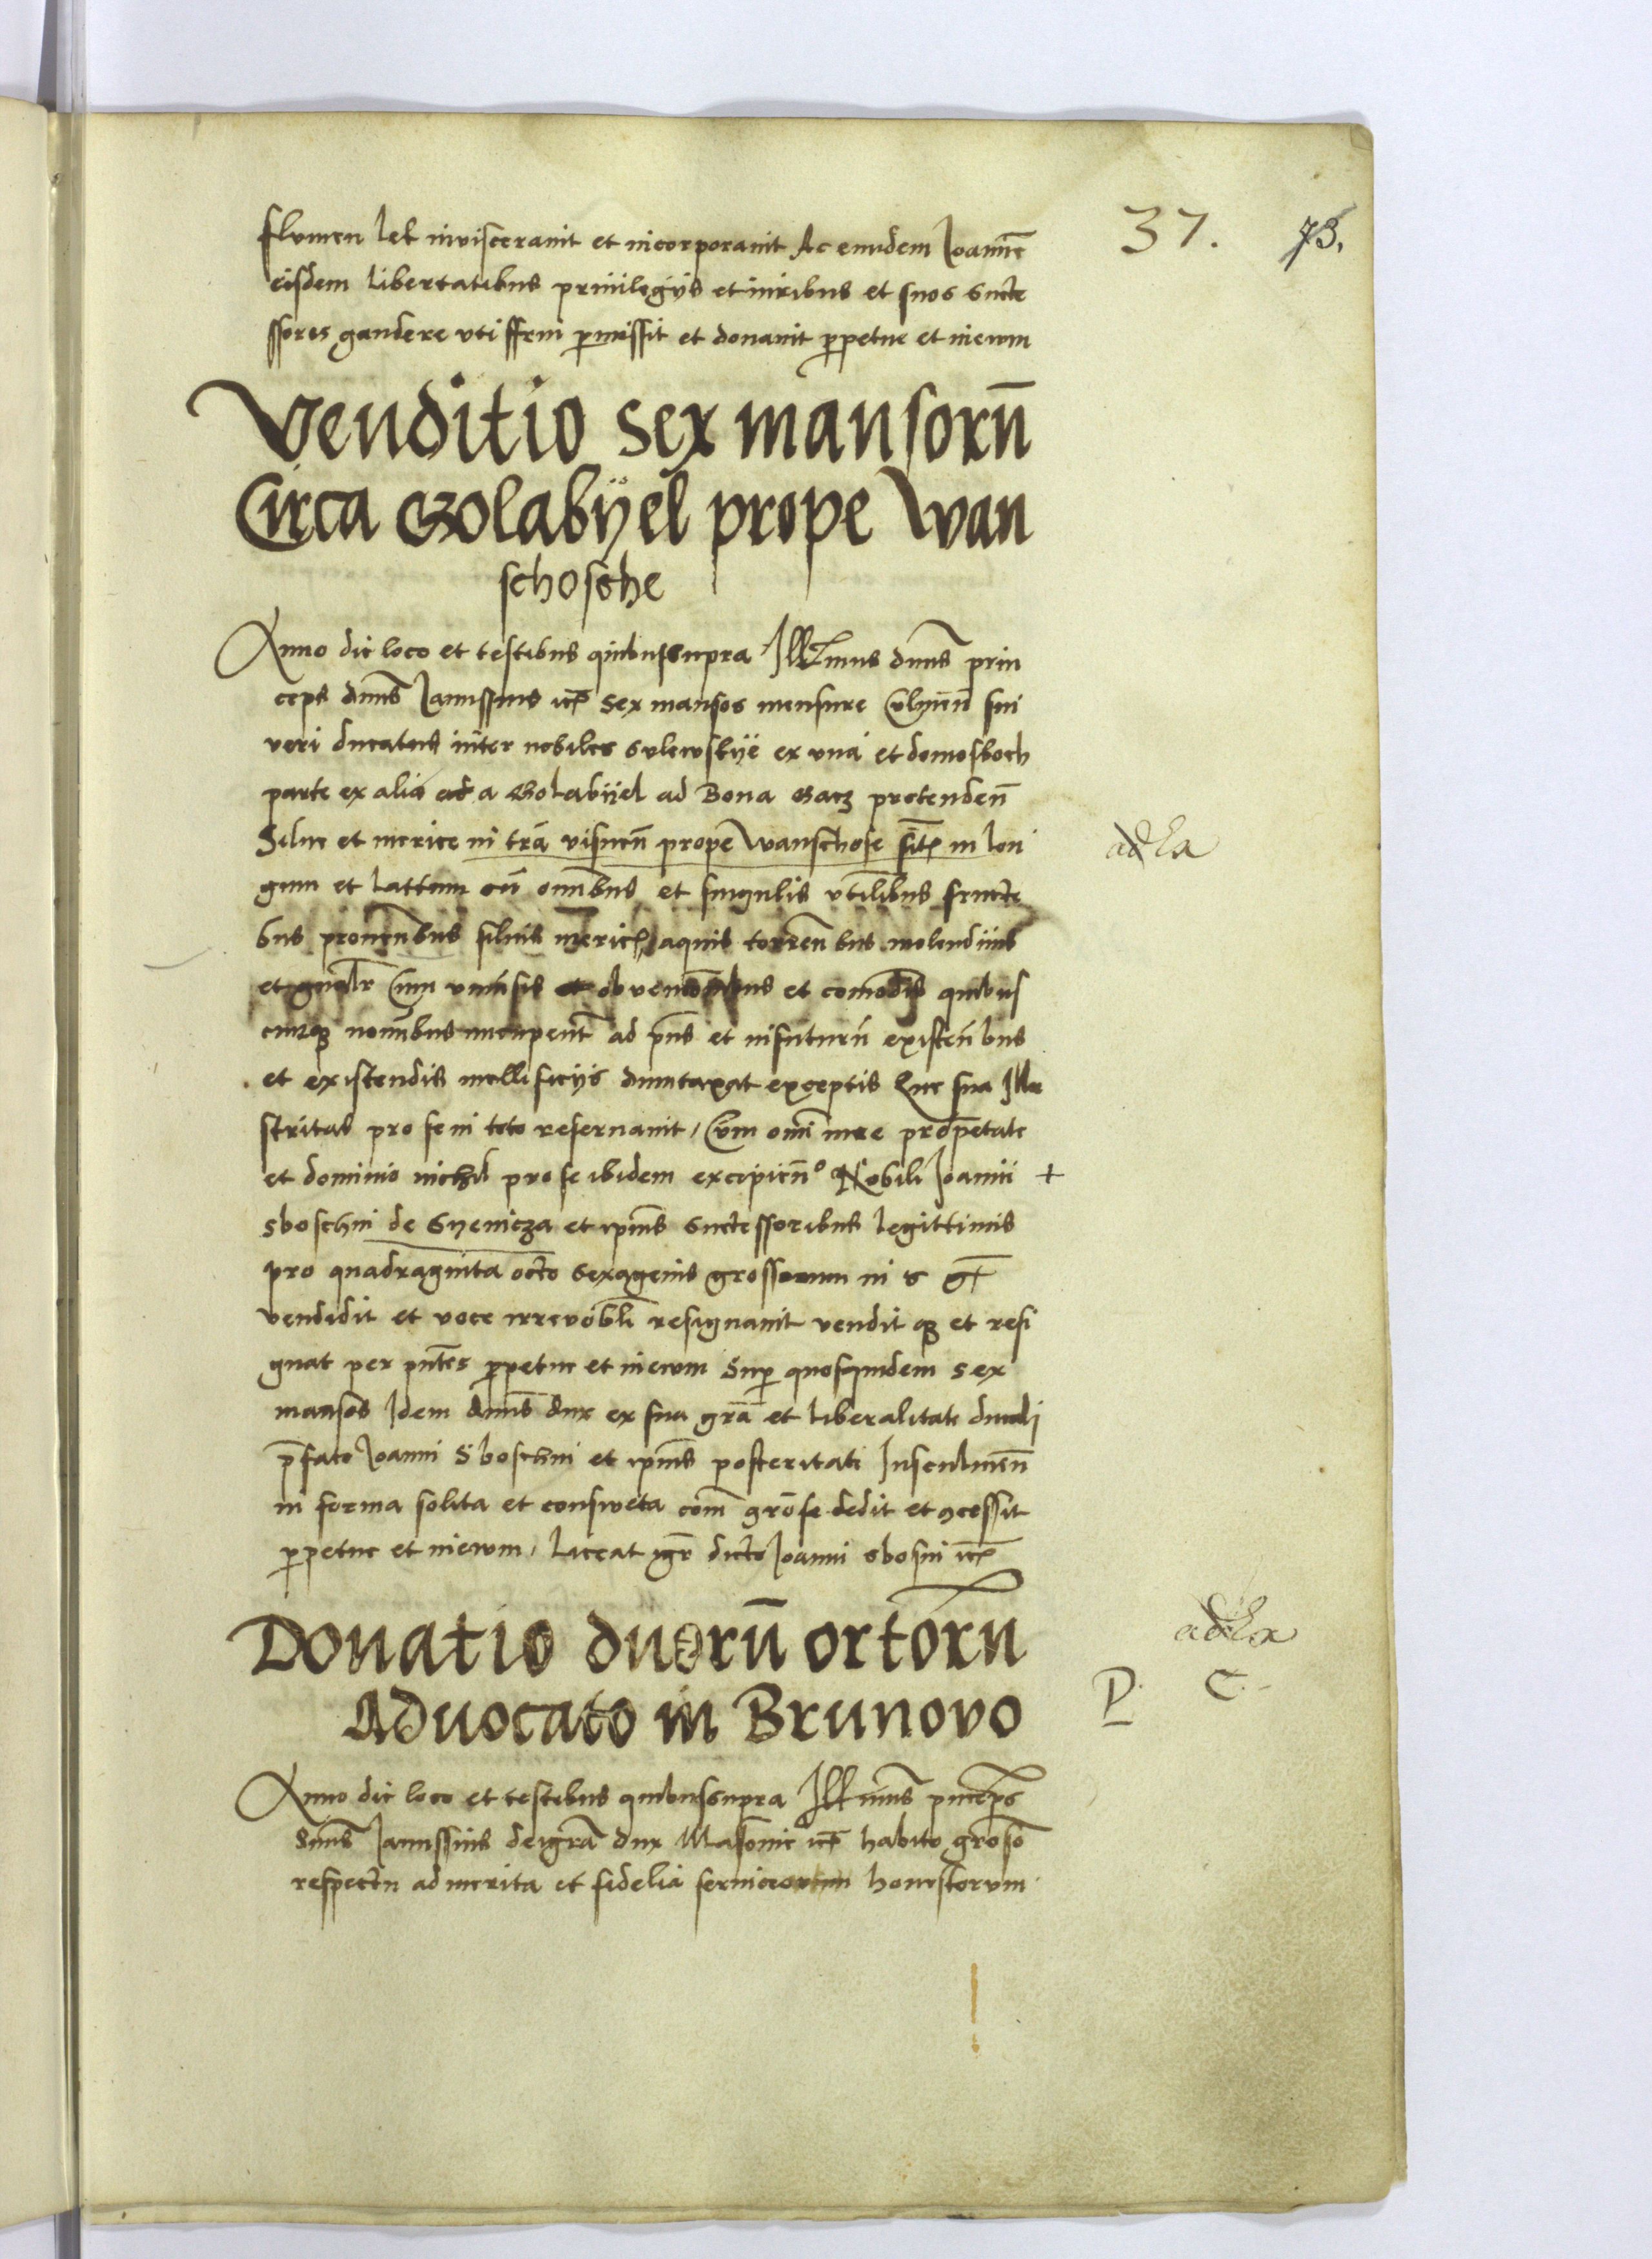 37. 73.
flumen lek inuisceranit et incorporauit Ac eundem Ioannē
eisdem libertatibus priuilegijs et iuribus et suos succe
ssores gaudere vti ffrui pmissit et donauit ppetue et ineum
Venditio sex mansorū
Circa Golabÿel prope Wan
schosche
Anno die loco et testibus quibussupra Illmus dnūs prin
ceps dnūs Ianussius sex mansos mensure Culmeñ sui
veri ducatus inter nobiles Sulewskÿe ex vna et domosboch
parte ex alia a Golabijel ad Bona Gacz protendeñ
Silue et merice in trā visneñ prope Wanschose in lon
gum et lattum cū omībus et singulis vtilibus fructi
bus prouenbus siluis aquis torreñbus molendinis
et gnalr Cum vniuīsis obvenconibus et comodis quibus
cunqꝫ nomībus nuncupent ad pns et infuturū existeñbus
et existendis mellificijs duntaxat exceptis Que sua Illu
stritas pro se in toto reseruauit, Cum omī iure propetate
et dominio nichil pro se ibidem excipieñº Nobili Ioanni +
sboschni de Syenicza et ipius successoribus legittimis
pro quadraginta octo sexagenis grossorum in
vendidit et voce irreuobli resignauit vendit qꝫ et resi
gnat per pntēs ppetue et ineum Sup quosquidem sex
mansos Idem dnūs dux ex sua grā et liberalitate ducali
pfato Ioanni Sboschni et ipius posteritati
in forma solita et consweta grōse dedit et ꝯcessit
ppetue et ineum, Liceat igr dicto Ioanni sbosni
Donatio duorū ortorū
Aduocato in Brunovo
P. C.
Anno die loco et testibus quibussupra Illmus pnceps
dnūs Ianussius deigrā dux Masouie habito groso
respectu ad merita et fidelia honestorum